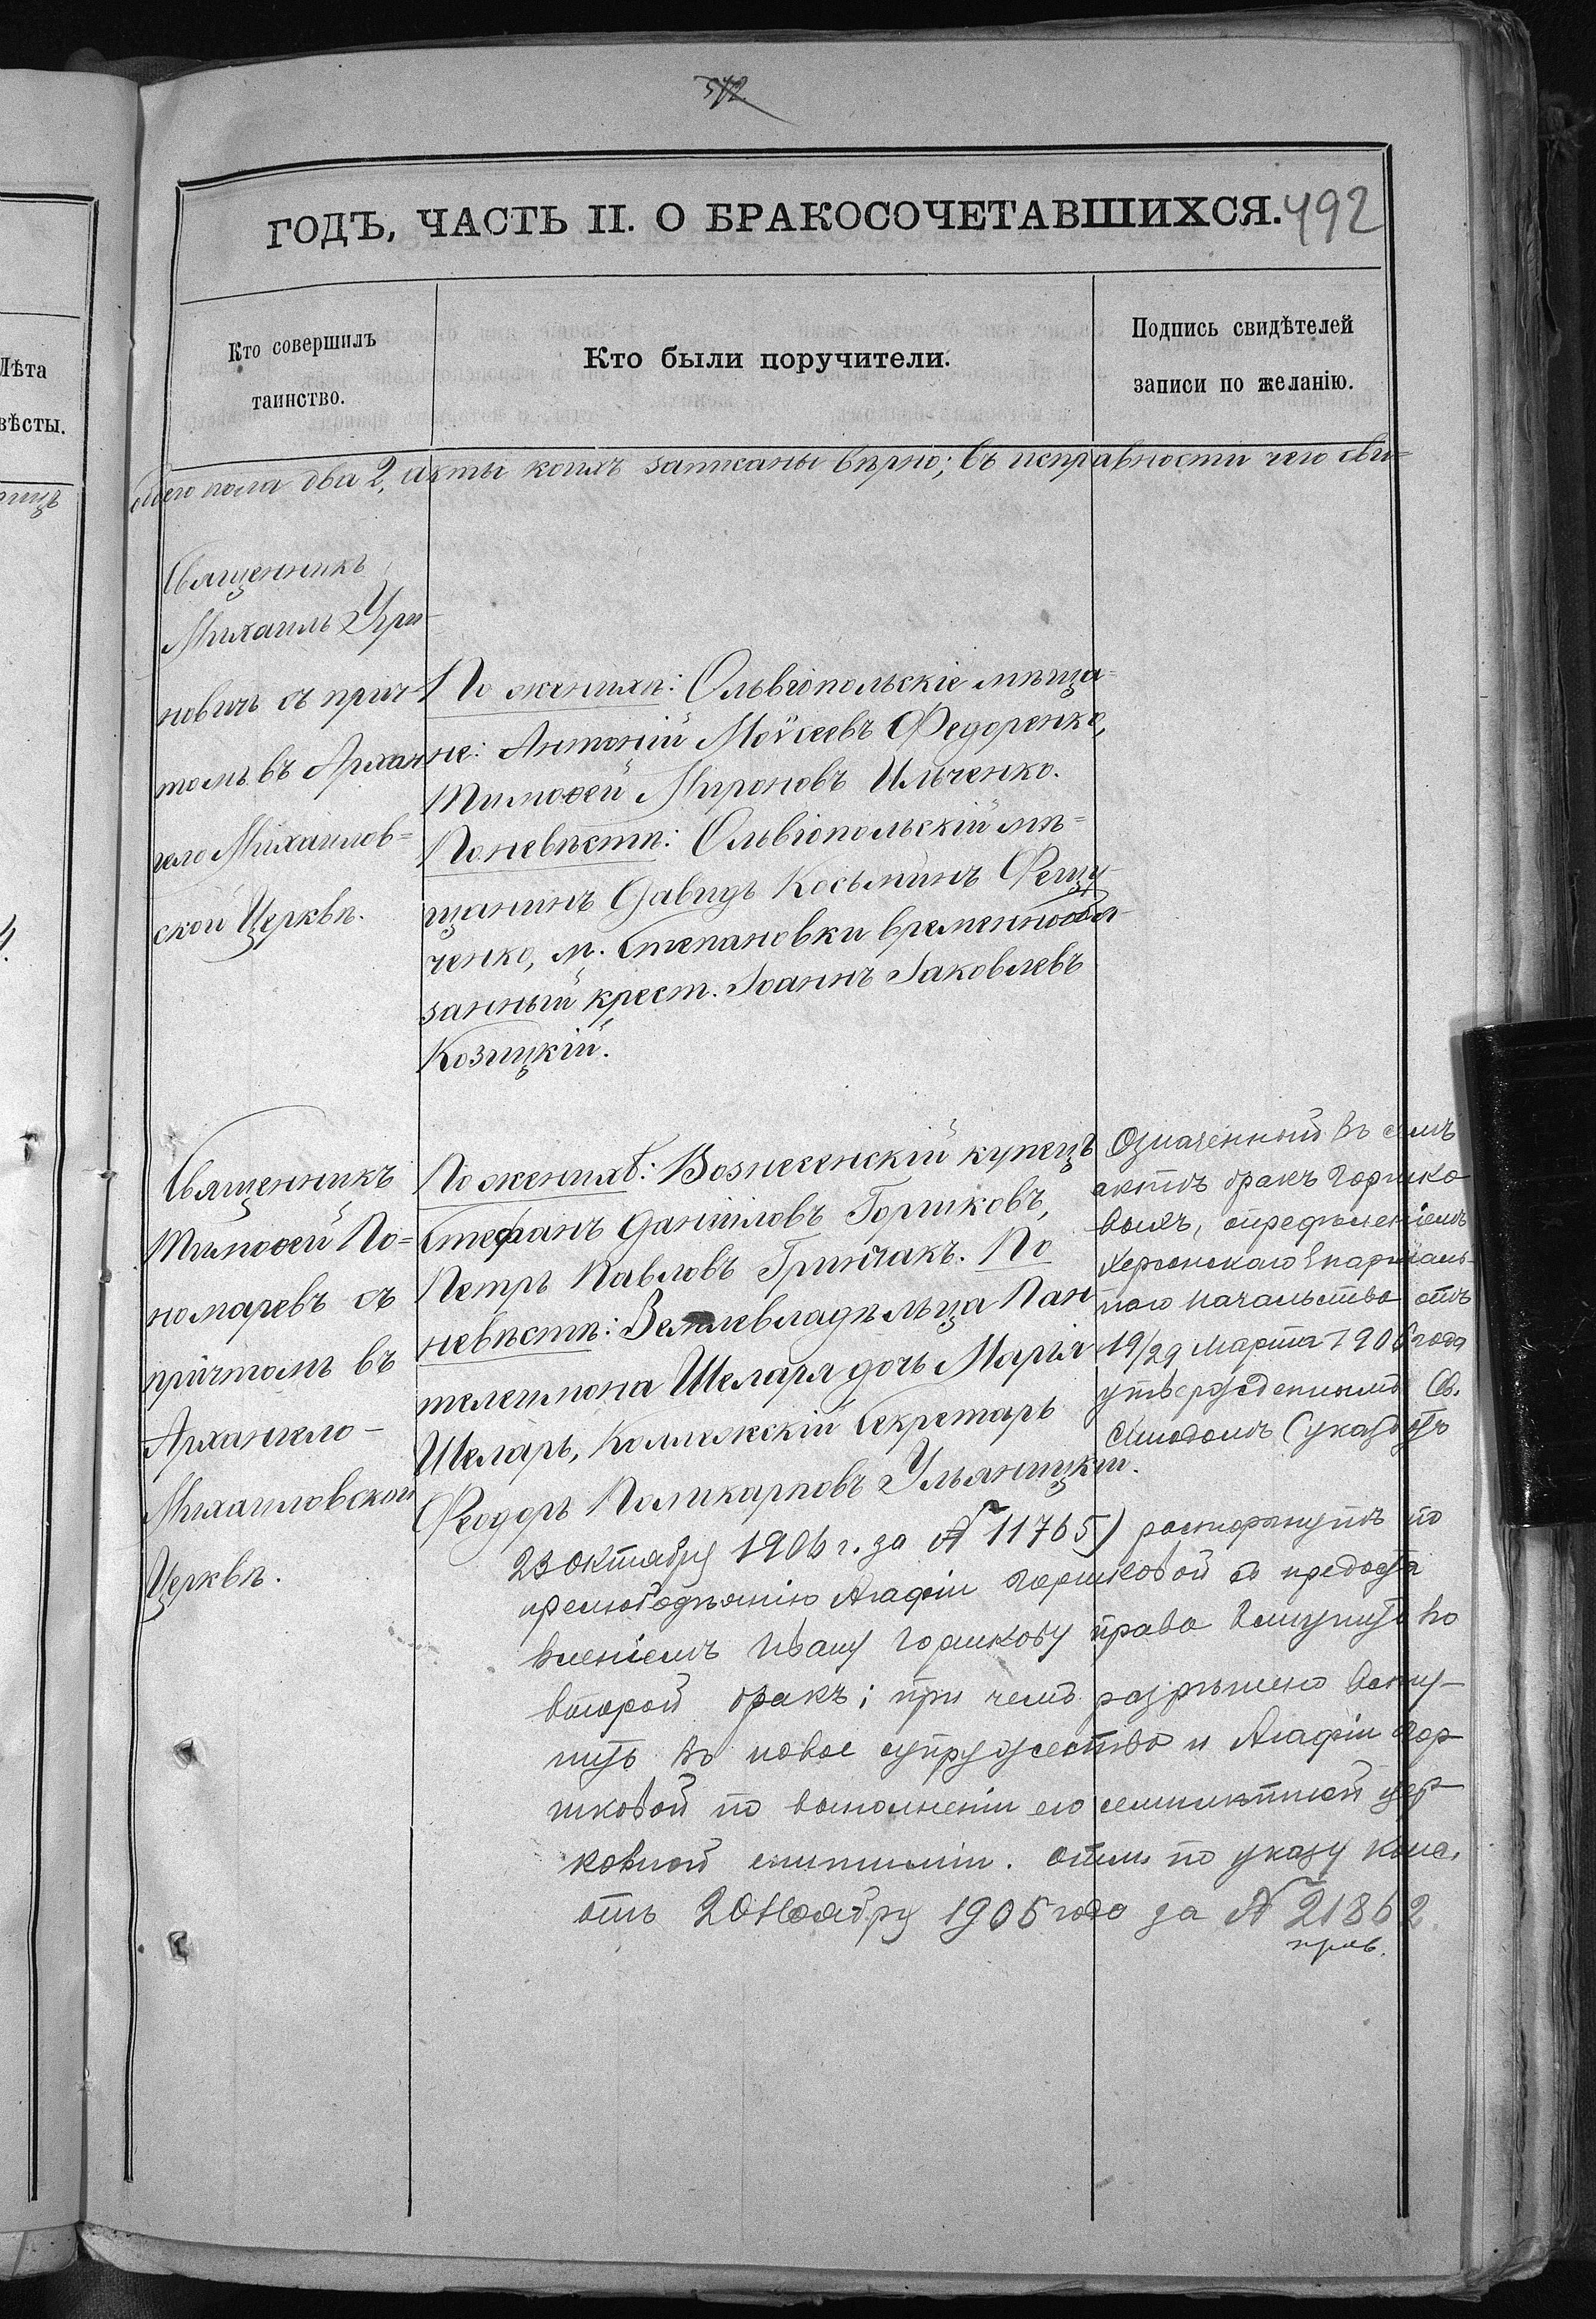 542
ГОДЪ, ЧАСТЬ II. О БРАКОСОЧЕТАВШИХСЯ.
492
Лѣта
вѣсты.
Кто совершилъ
таинство.
Кто были поручители.
Подпись свидѣтелей
записи по желанію.
пола два 2, акты коихъ записаны вѣрно; въ исправности чего сви-
Священникъ
Михаилъ Гри-
новичъ съ прич-
томъ въ Архан
гело Михайлов=
ской Церквѣ.
По женихѣ: Ольвіопольскіе мѣща-
не: Антоній Моѵсеевъ Федоренко,
Тимоѳей Мироновъ Ильченко.
По невѣстѣ: Ольвіопольскій мѣ=
щанинъ Давидъ Косьминъ
ченко, м. Степановки временнообя-
занный крест. Іоаннъ Іаковлевъ
Козицкій.
Священникъ
Тимоѳей По=
номаревъ съ
причтомъ въ
Архангело-
Михайловской
Церквѣ.
По женихѣ: Вознесенскій купецъ
Стефанъ Даніиловъ Горшковъ,
Петръ Павловъ Гринчакъ. По
невѣстѣ: Землевладѣльца Пан
телеимона Шеларя дочь Марія
Шеларь, Коллежскій Секретарь
Феодоръ Поликарповъ Ульяницкій.
Означенный въ семъ
актѣ бракъ Горшко
выхъ, опредѣленіемъ
Херсонскаго Епархіаль-
наго Начальства отъ
19/29 Марта 1906 года
утвержденнымъ Св.
Синодомъ (указъ отъ
23 Октября 1906 г. за № 11765) расторгнутъ по
прелюбодѣянію Агафіи Горшковой съ предоста
вленіемъ Ивану Горшкову права вступить во
второй бракъ; при чемъ разрѣшено всту-
пить въ новое супружество и Агафіи Гор-
шковой по выполненіи ею семилѣтней цер-
ковной епитиміи. по указу Конс.
отъ 20 Ноября 1906 года за № 21862.